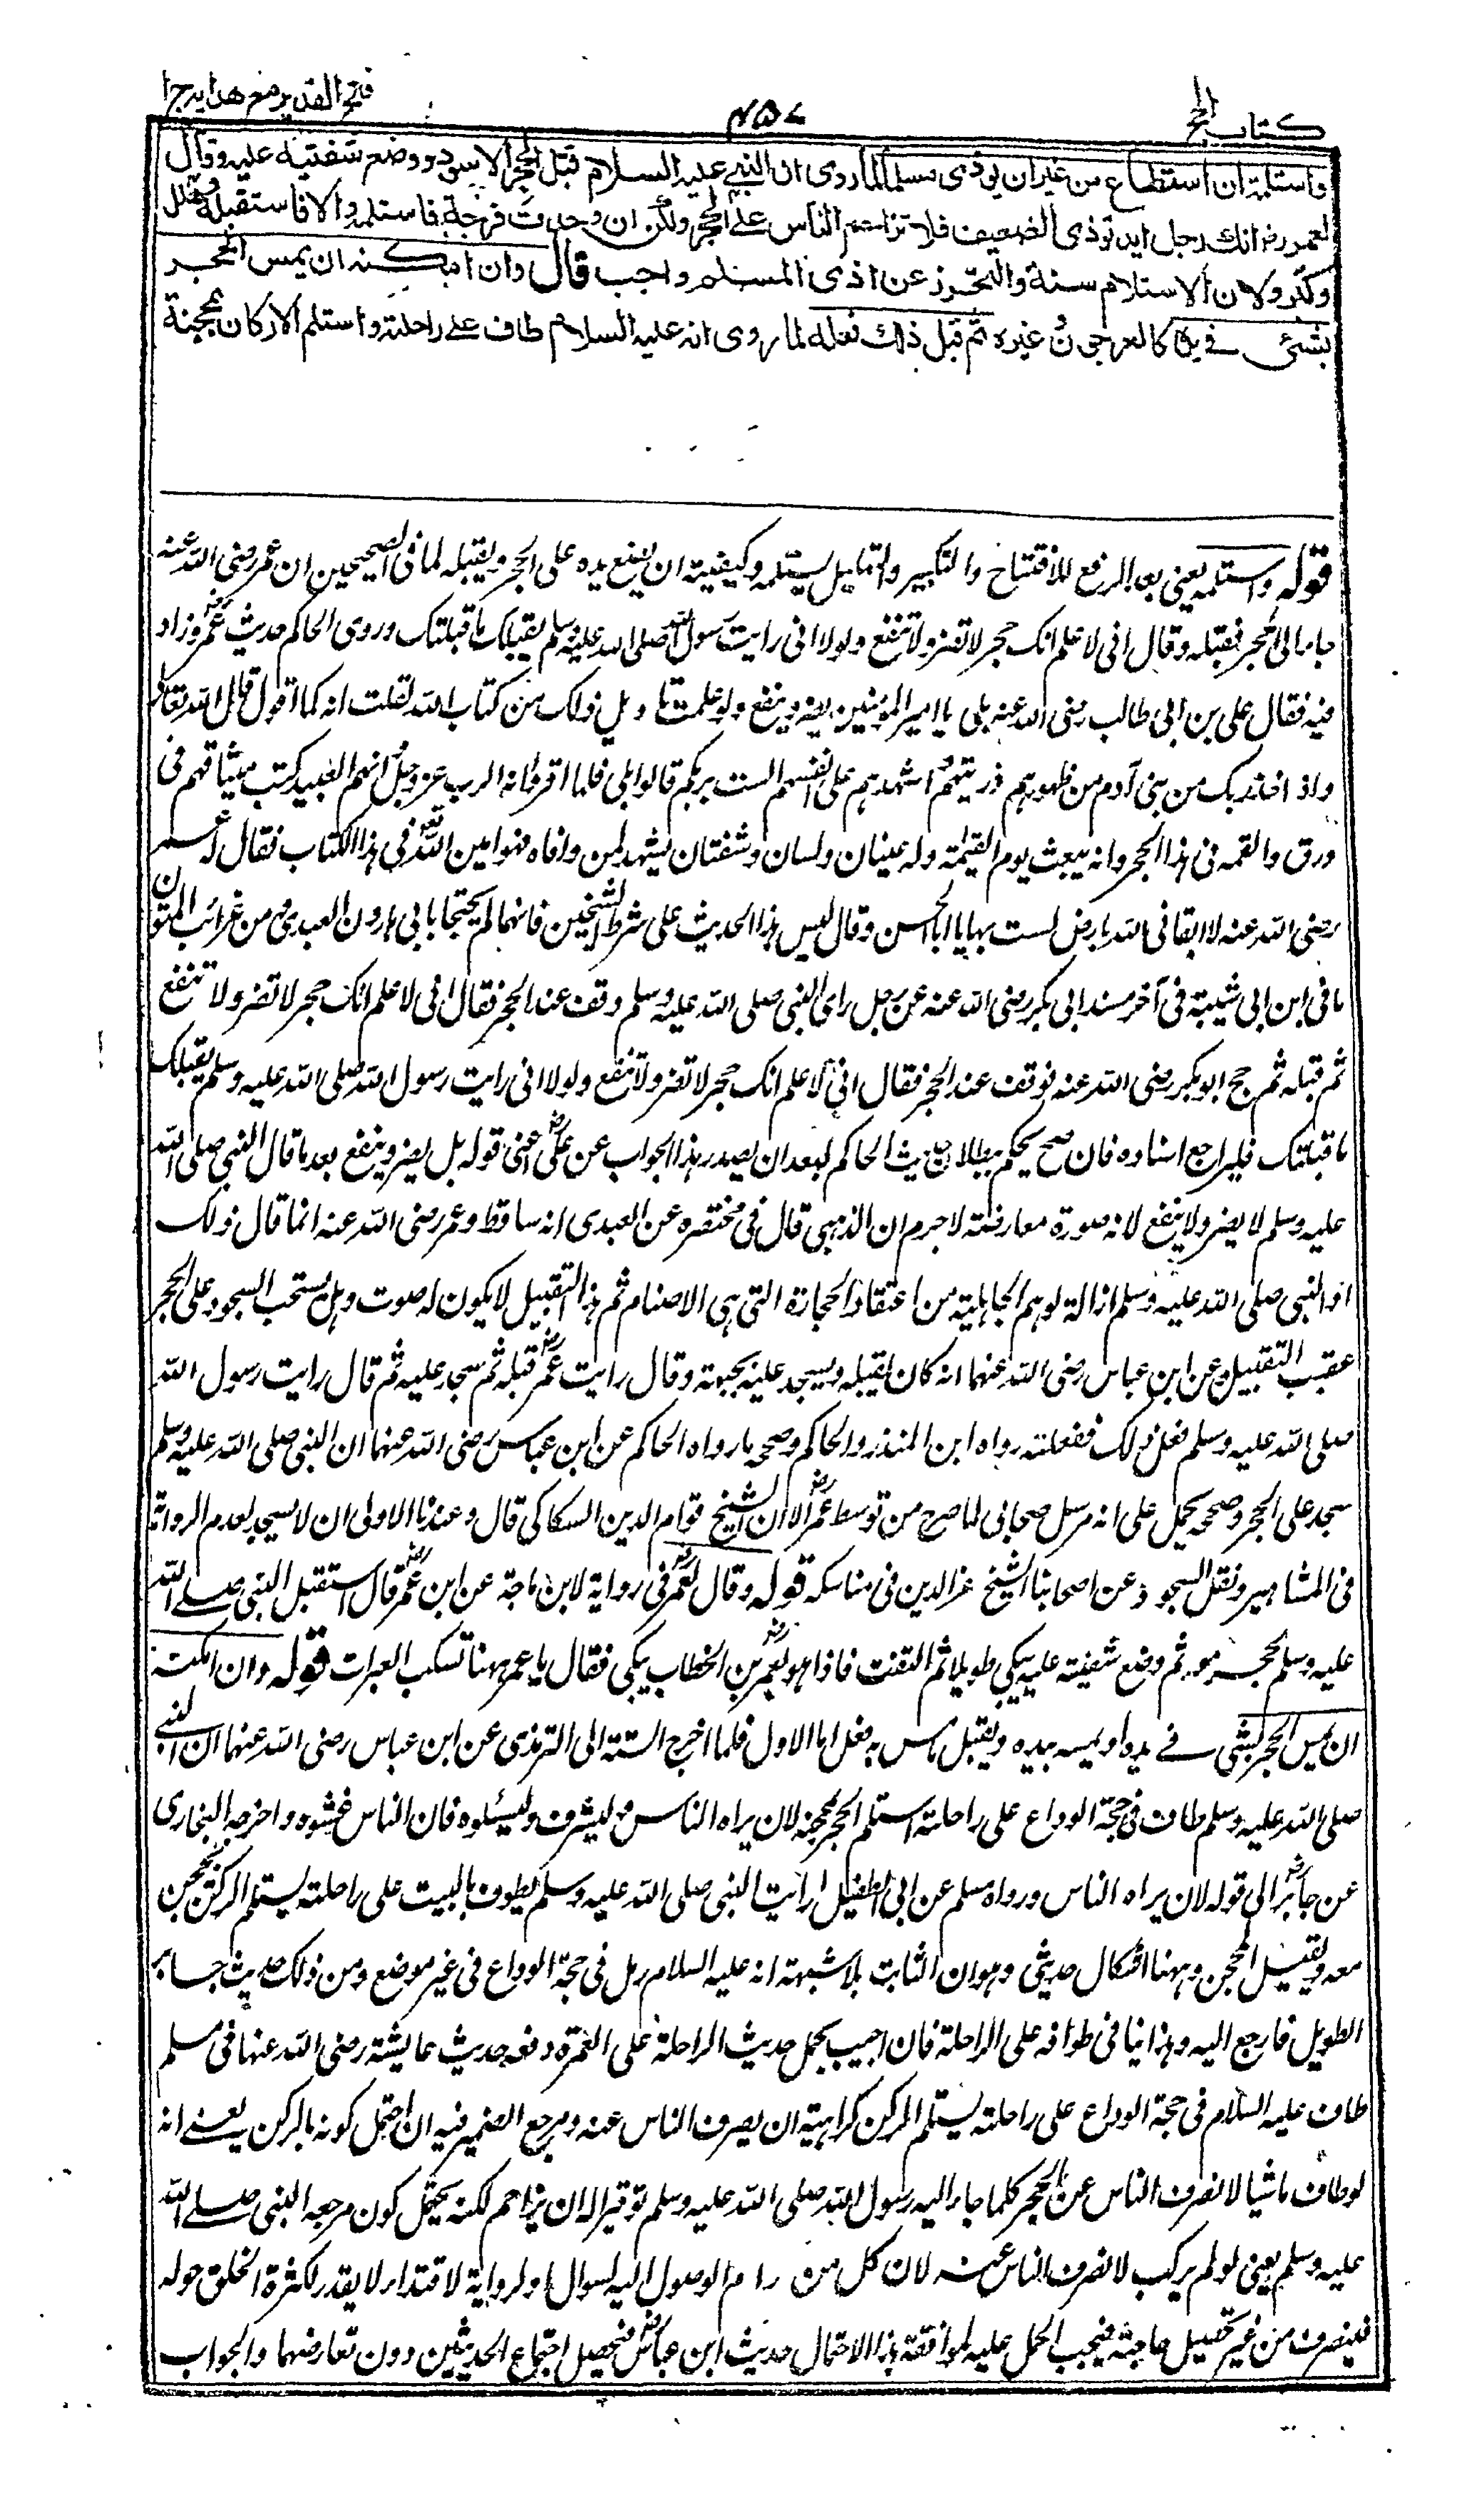 كتاب الحج
٤٥٧
فتح القدير مع هدايه ج ا
واستلمه ان استطاع من غير ان يوذى مسلما لما روى ان النبي عليه السلام قبل الحجر الاسود ووضع شفتيه عليه وقال
لعمر رض انك رجل ايد توذى الضعيف فلا تزاحم الناس على الحجر ولكن ان وجدت فرجة فاستلمه والا فاستقبله وهلل
وكبر ولان الاستلام سنة والتحرز عن اذى المسلم واجب قال وان امكنه ان يمس الحجر
بشئ في يده كالعرجون وغيره ثم قبل ذلك فعله لما روى انه عليه السلام طاف على راحلته واستلم الاركان بمحجنه
قوله واستلمه يعني بعد الرفع للافتتاح والتكبير والتهليل يستلمه وكيفيته ان يضع يده على الحجر ويقبله لما فى الصحيحين ان عمر رضى الله عنه
جاء الى الحجر فقبله وقال انى لاعلم انك حجر لا تضر ولا تنفع ولولا انى رايت رسول الله صلى الله عليه وسلم يقبلك ما قبلتك وروى الحاكم حديث عمر رض وزاد
فيه فقال على بن ابى طالب رضى الله عنه بلى يا امير المؤمنين يضر وينفع ولو علمت تاويل ذلك من كتاب الله لقلت انه كما اقول قال الله تعالى
واذ اخذ ربك من بنى آدم من ظهورهم ذريتهم واشهدهم على انفسهم الست بربكم قالوا بلى فلما اقروا انه الرب عز وجل وانهم العبيد كتب ميثاقهم فى
ورق والقمه فى هذا الحجر وانه يبعث يوم القيمة وله عينان ولسان وشفتان يشهد لمن وافاه فهو امين الله تعالى فى هذا الكتاب فقال له عمر
رضى الله عنه لا ابقانى الله بارض لست بها يا ابا الحسن وقال ليس هذا الحديث على شرط الشيخين فانهما لم يحتجا بابى هارون العبدى ومن غرائب المتون
ما فى ابن ابى شيبة فى آخر مسند ابى بكر رضى الله عنه عن رجل راى النبى صلى الله عليه وسلم وقف عند الحجر فقال انى لاعلم انك حجر لا تضر ولا تنفع
ثم قبله ثم حج ابو بكر رضى الله عنه فوقف عند الحجر فقال انى لاعلم انك حجر لا تضر ولا تنفع ولولا انى رايت رسول الله صلى الله عليه وسلم يقبلك
ما قبلتك فليراجع اسناده فان صح يحكم ببطلان حديث الحاكم لبعد ان يصدر هذا الجواب عن على رض اعنى قوله بل يضر وينفع بعد ما قال النبى صلى الله
عليه وسلم لا يضر ولا ينفع لانه صورة معارضة لا جرم ان الذهبى قال فى مختصره عن العبدى انه ساقط وعمر رضى الله عنه انما قال ذلك
او النبى صلى الله عليه وسلم ازالة لوهم الجاهلية من اعتقاد الحجارة التى هى الاصنام ثم هذا التقبيل لا يكون له صوت وهل يستحب السجود على الحجر
عقب التقبيل فعن ابن عباس رضى الله عنهما انه كان يقبله ويسجد عليه بجبهته وقال رايت عمر رض قبله ثم سجد عليه ثم قال رايت رسول الله
صلى الله عليه وسلم فعل ذلك ففعلته رواه ابن المنذر والحاكم وصححه وما رواه الحاكم عن ابن عباس رضى الله عنهما ان النبى صلى الله عليه وسلم
سجد على الحجر وصححه يحمل على انه مرسل صحابى لما صرح من توسط عمر رض الا ان الشيخ قوام الدين السكاكى قال وعندنا الاولى ان لا يسجد لعدم الرواية
فى المشاهير ونقل السجود عن اصحابنا الشيخ عز الدين فى مناسكه قوله وقال لعمر رض فى رواية لابن ماجة عن ابن عمر رض قال استقبل النبى صلى الله
عليه وسلم الحجر ثم وضع شفتيه عليه يبكى طويلا ثم التفت فاذا هو بعمر رض بن الخطاب يبكى فقال يا عمر ههنا تسكب العبرات قوله وان امكنه
ان يمس الحجر بشئ في يده او يمسه بيده ويقبل ما مس به فعل اما الاول فلما اخرج الستة الى الترمذى عن ابن عباس رضى الله عنهما ان النبي
صلى الله عليه وسلم طاف فى حجة الوداع على راحلته يستلم الحجر بمحجنه لان يراه الناس وليشرف وليسئلوه فان الناس غشوه واخرجه البخارى
عن جابر رض الى قوله لان يراه الناس ورواه مسلم عن ابى الطفيل رايت النبى صلى الله عليه وسلم يطوف بالبيت على راحلته يستلم الركن بمحجن
معه ويقبل المحجن وههنا اشكال حديثى وهو ان الثابت بلا شبهة انه عليه السلام رمل فى حجة الوداع فى غير موضع ومن ذلك حديث جابر
الطويل فارجع اليه وهذا ينافى طوافه على الراحلة فان اجيب بحمل حديث الراحلة على العمرة دفعه حديث عايشة رضى الله عنها فى مسلم
طاف عليه السلام فى حجة الوداع على راحلته يستلم الركن كراهية ان يصرف الناس عنه ومرجع الضمير فيه ان احتمل كونه الركن يعنى انه
لو طاف ماشيا لانصرف الناس عن الحجر كلما جاء اليه رسول الله صلى الله عليه وسلم توقيرا له ان يزاحم لكنه يحتمل كون مرجعه النبى صلى الله
عليه وسلم يعنى لو لم يركب لانصرف الناس عنه لان كل من رام الوصول اليه لسوال او لرواية لاقتداء لا يقدر لكثرة الخلق حوله
فينصرف من غير تحصيل حاجته فيجب الحمل عليه لموافقة هذا الاحتمال حديث ابن عباس رض فيحصل اجتماع الحديثين دون تعارضهما والجواب